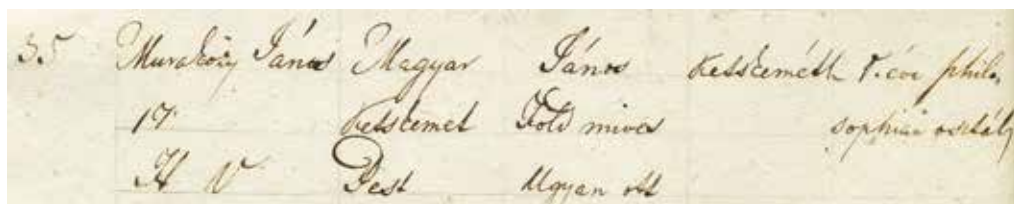 35 Muraközy János Magyar János Kecskeméth I. évi philo,
17. Kecskemét Föld mives sophiai osztály
H V Pest Ugyan ott